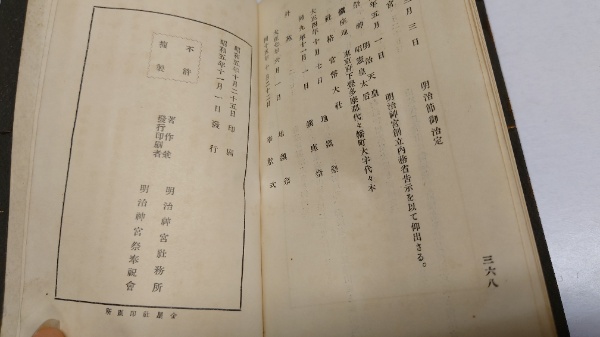 三六八
月三日
明治節御治定
年五月一日
明治神宮創立內務省告示を以て仰出さる。
祭神
明治天皇
昭憲皇太后
鎭座地
東京府下豊多摩郡代々幡町大字代々木
社格
官幣大社
大正四年十月七日
地鎭祭
同九年十一月一日
鎭座祭
昭和五年十月二十五日印刷
昭和五年十一月一日發行
不許
複製
著作兼
發行印刷者
明治神宮社務所
明治神宮祭奉祝會